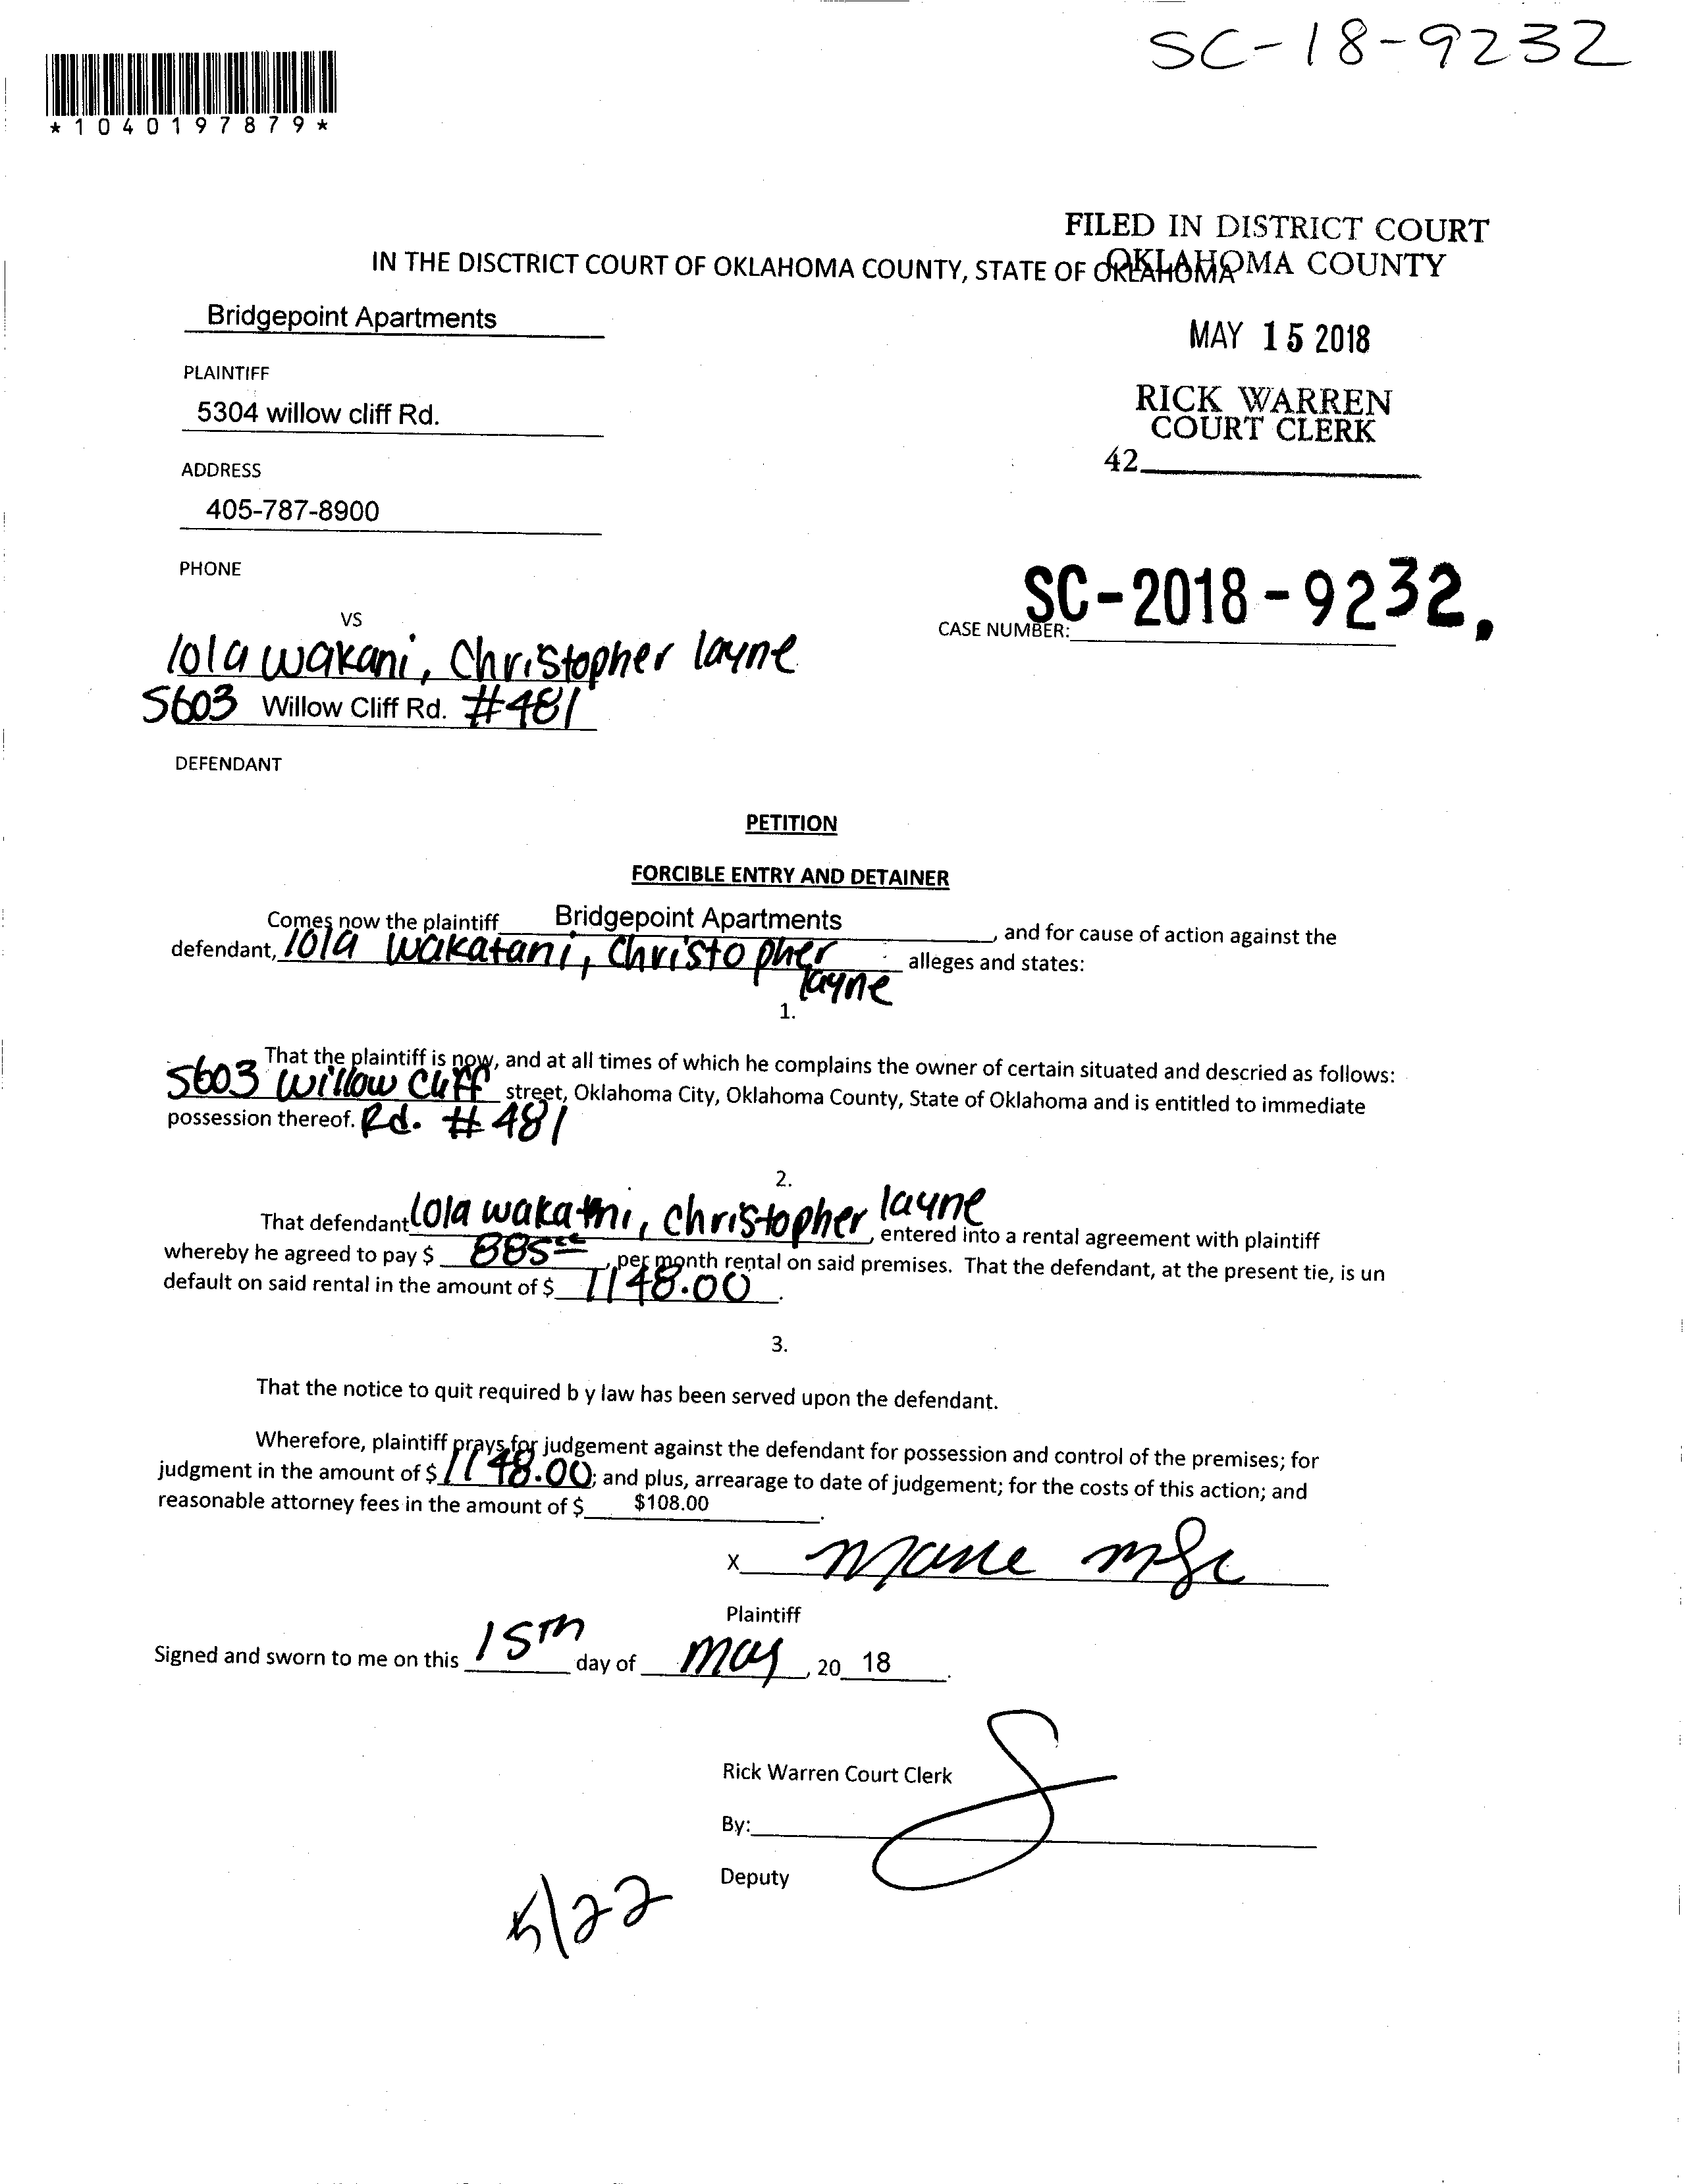 SC-18-9232
*1040197879*
FILED IN DISTRICT COURT
OKLAHOMA COUNTY
IN THE DISCTRICT COURT OF OKLAHOMA COUNTY, STATE OF OKLAHOMA
Bridgepoint Apartments
MAY 15 2018
PLAINTIFF
RICK WARREN
5304 willow cliff Rd.
COURT CLERK
ADDRESS
42
405-787-8900
PHONE
SC-2018-9232.
VS
CASE NUMBER:
lola wakani, Christopher layne
5603 Willow Cliff Rd. #481
DEFENDANT
PETITION
FORCIBLE ENTRY AND DETAINER
Comes now the plaintiff Bridgepoint Apartments, and for cause of action against the
defendant, lola wakatani, Christopher layne alleges and states:
1.
That the plaintiff is now, and at all times of which he complains the owner of certain situated and descried as follows:
5603 Willow Cliff street, Oklahoma City, Oklahoma County, State of Oklahoma and is entitled to immediate
possession thereof. Rd. #481
2.
That defendant lola, christopher layne, entered into a rental agreement with plaintiff
whereby he agreed to pay $ 885, per month rental on said premises. That the defendant, at the present tie, is un
default on said rental in the amount of $ 1148.00.
3.
That the notice to quit required b y law has been served upon the defendant.
Wherefore, plaintiff prays for judgement against the defendant for possession and control of the premises; for
judgment in the amount of $ 1148.00; and plus, arrearage to date of judgement; for the costs of this action; and
reasonable attorney fees in the amount of $ $108.00.
X
Plaintiff
Signed and sworn to me on this 15th day of may, 20 18.
Rick Warren Court Clerk
By:
Deputy
5/22